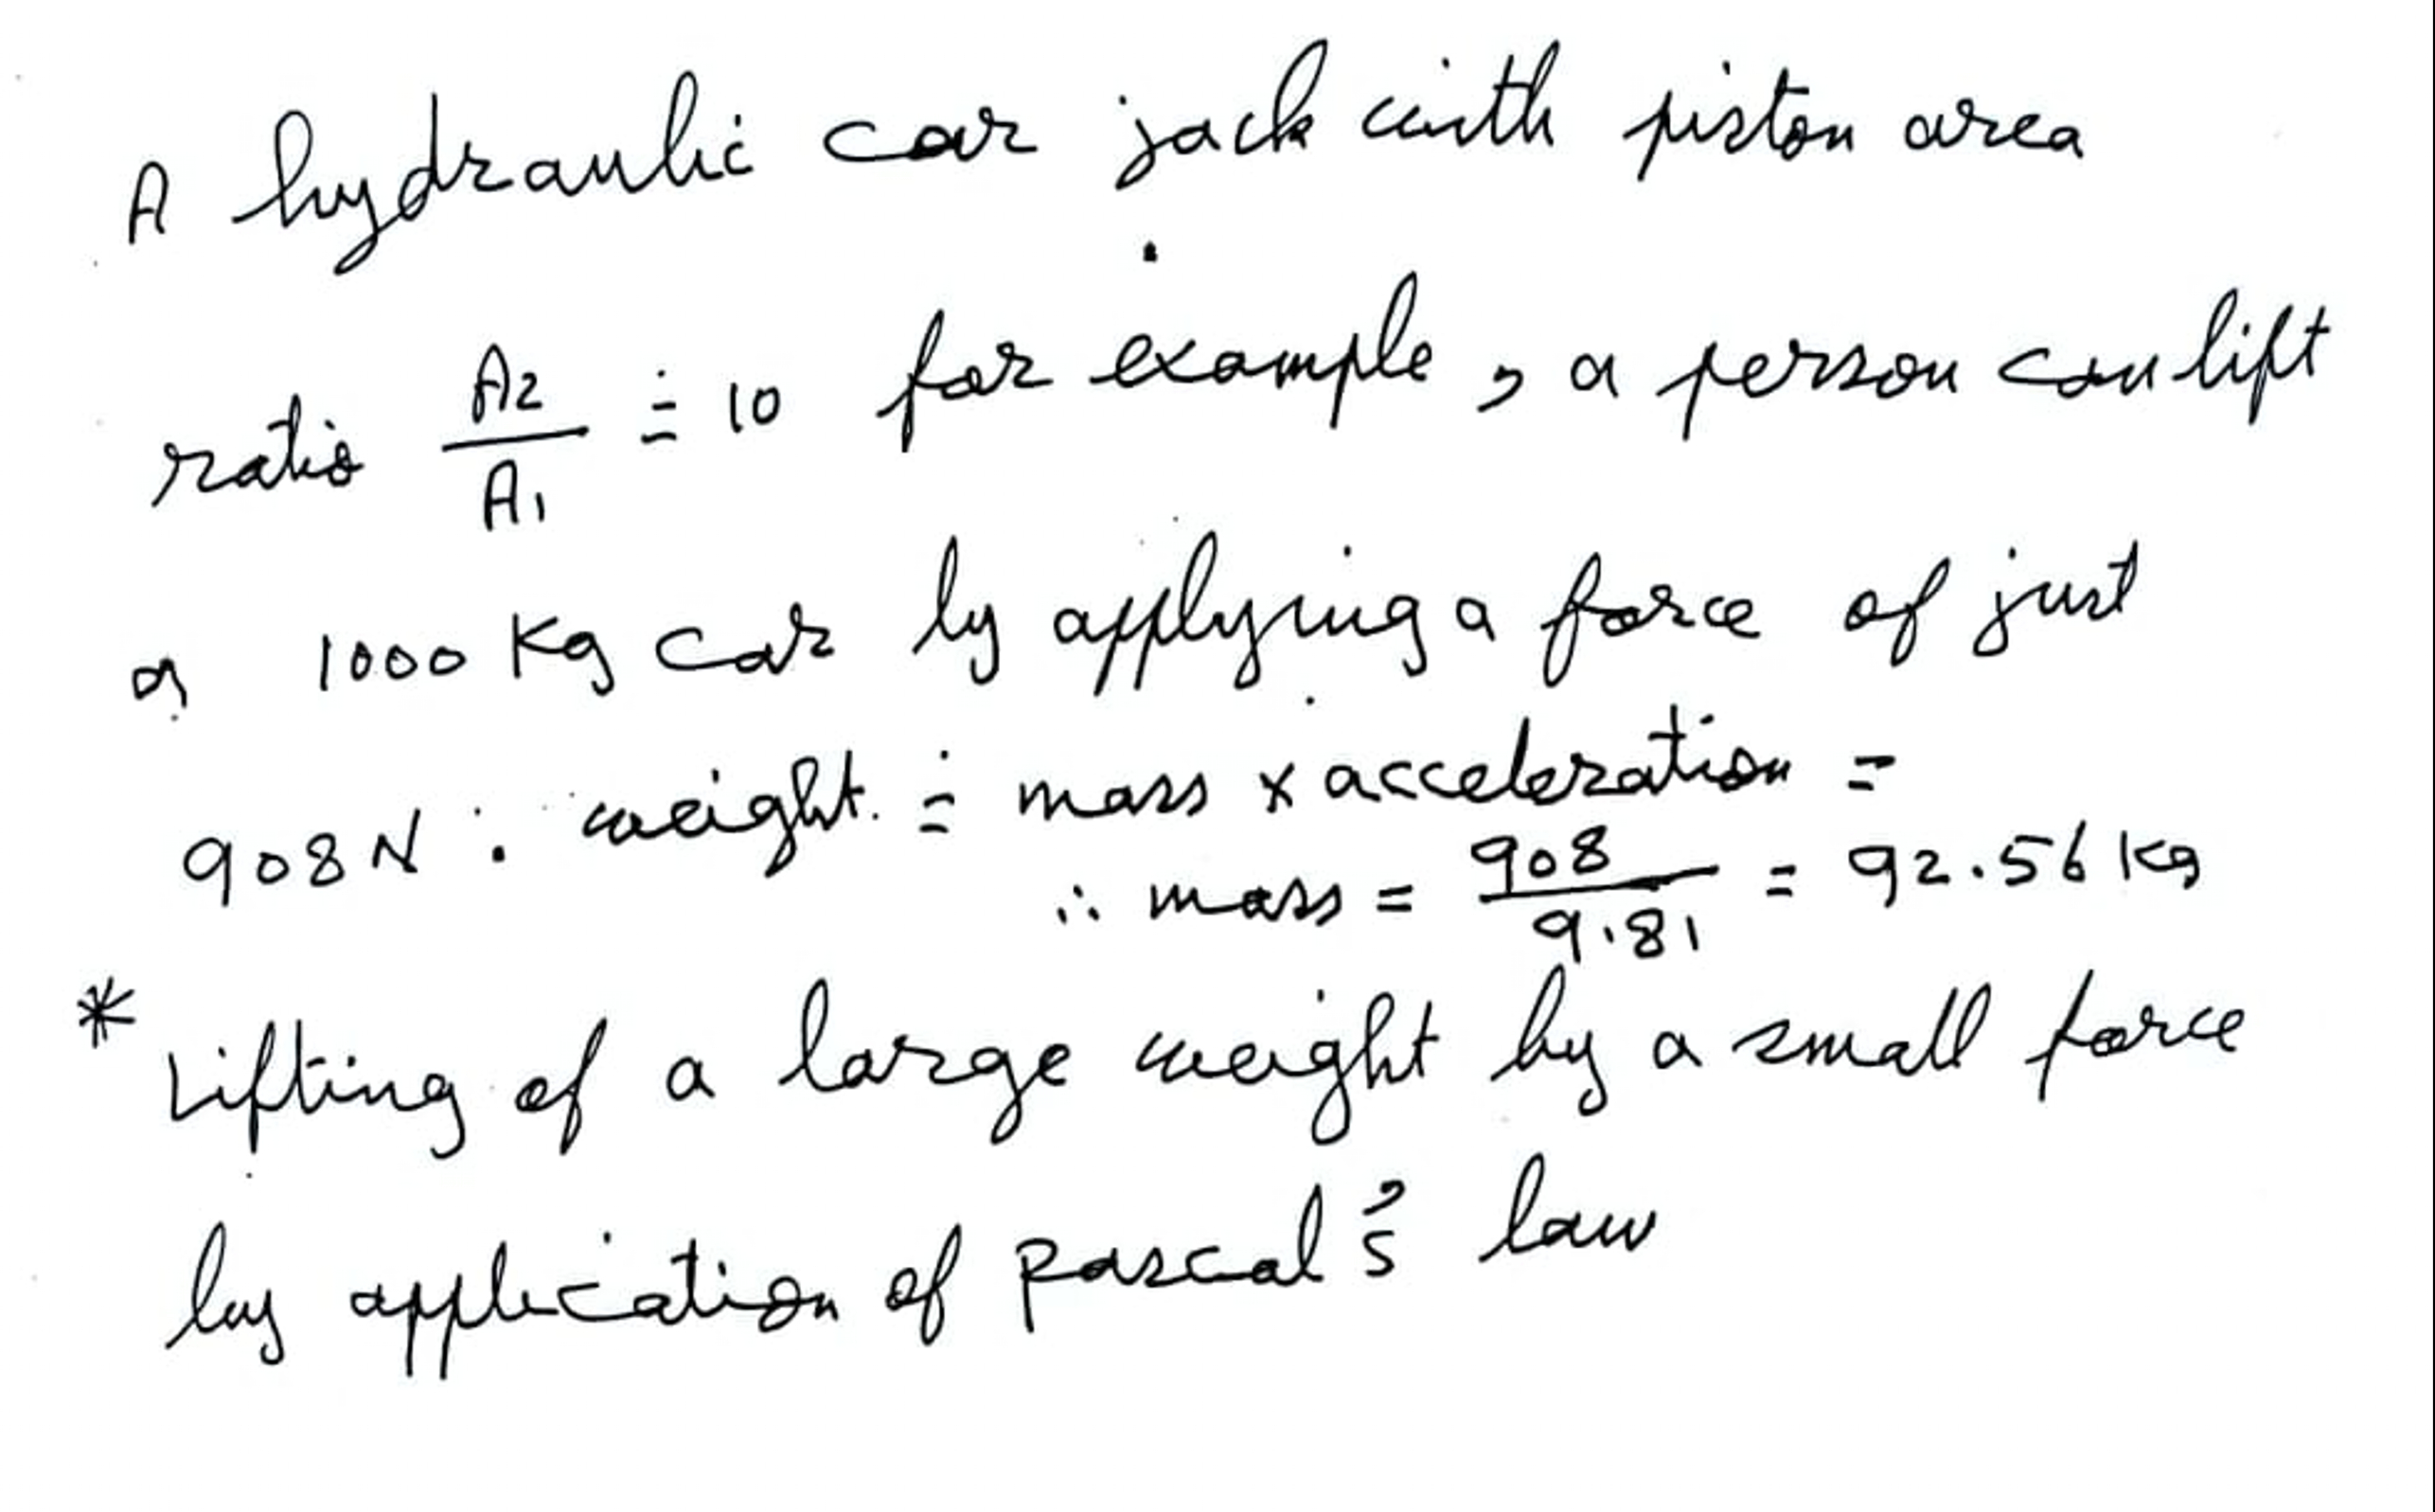 A hydraulic car jack with piston area
ratio A2/A1 = 10 for example, a person can lift
a 1000 Kg car by applying a force of just
908 N : weight = mass x acceleration =
∴ mass = 908/9.81 = 92.56 kg
* Lifting of a large weight by a small force
by application of Pascal's law